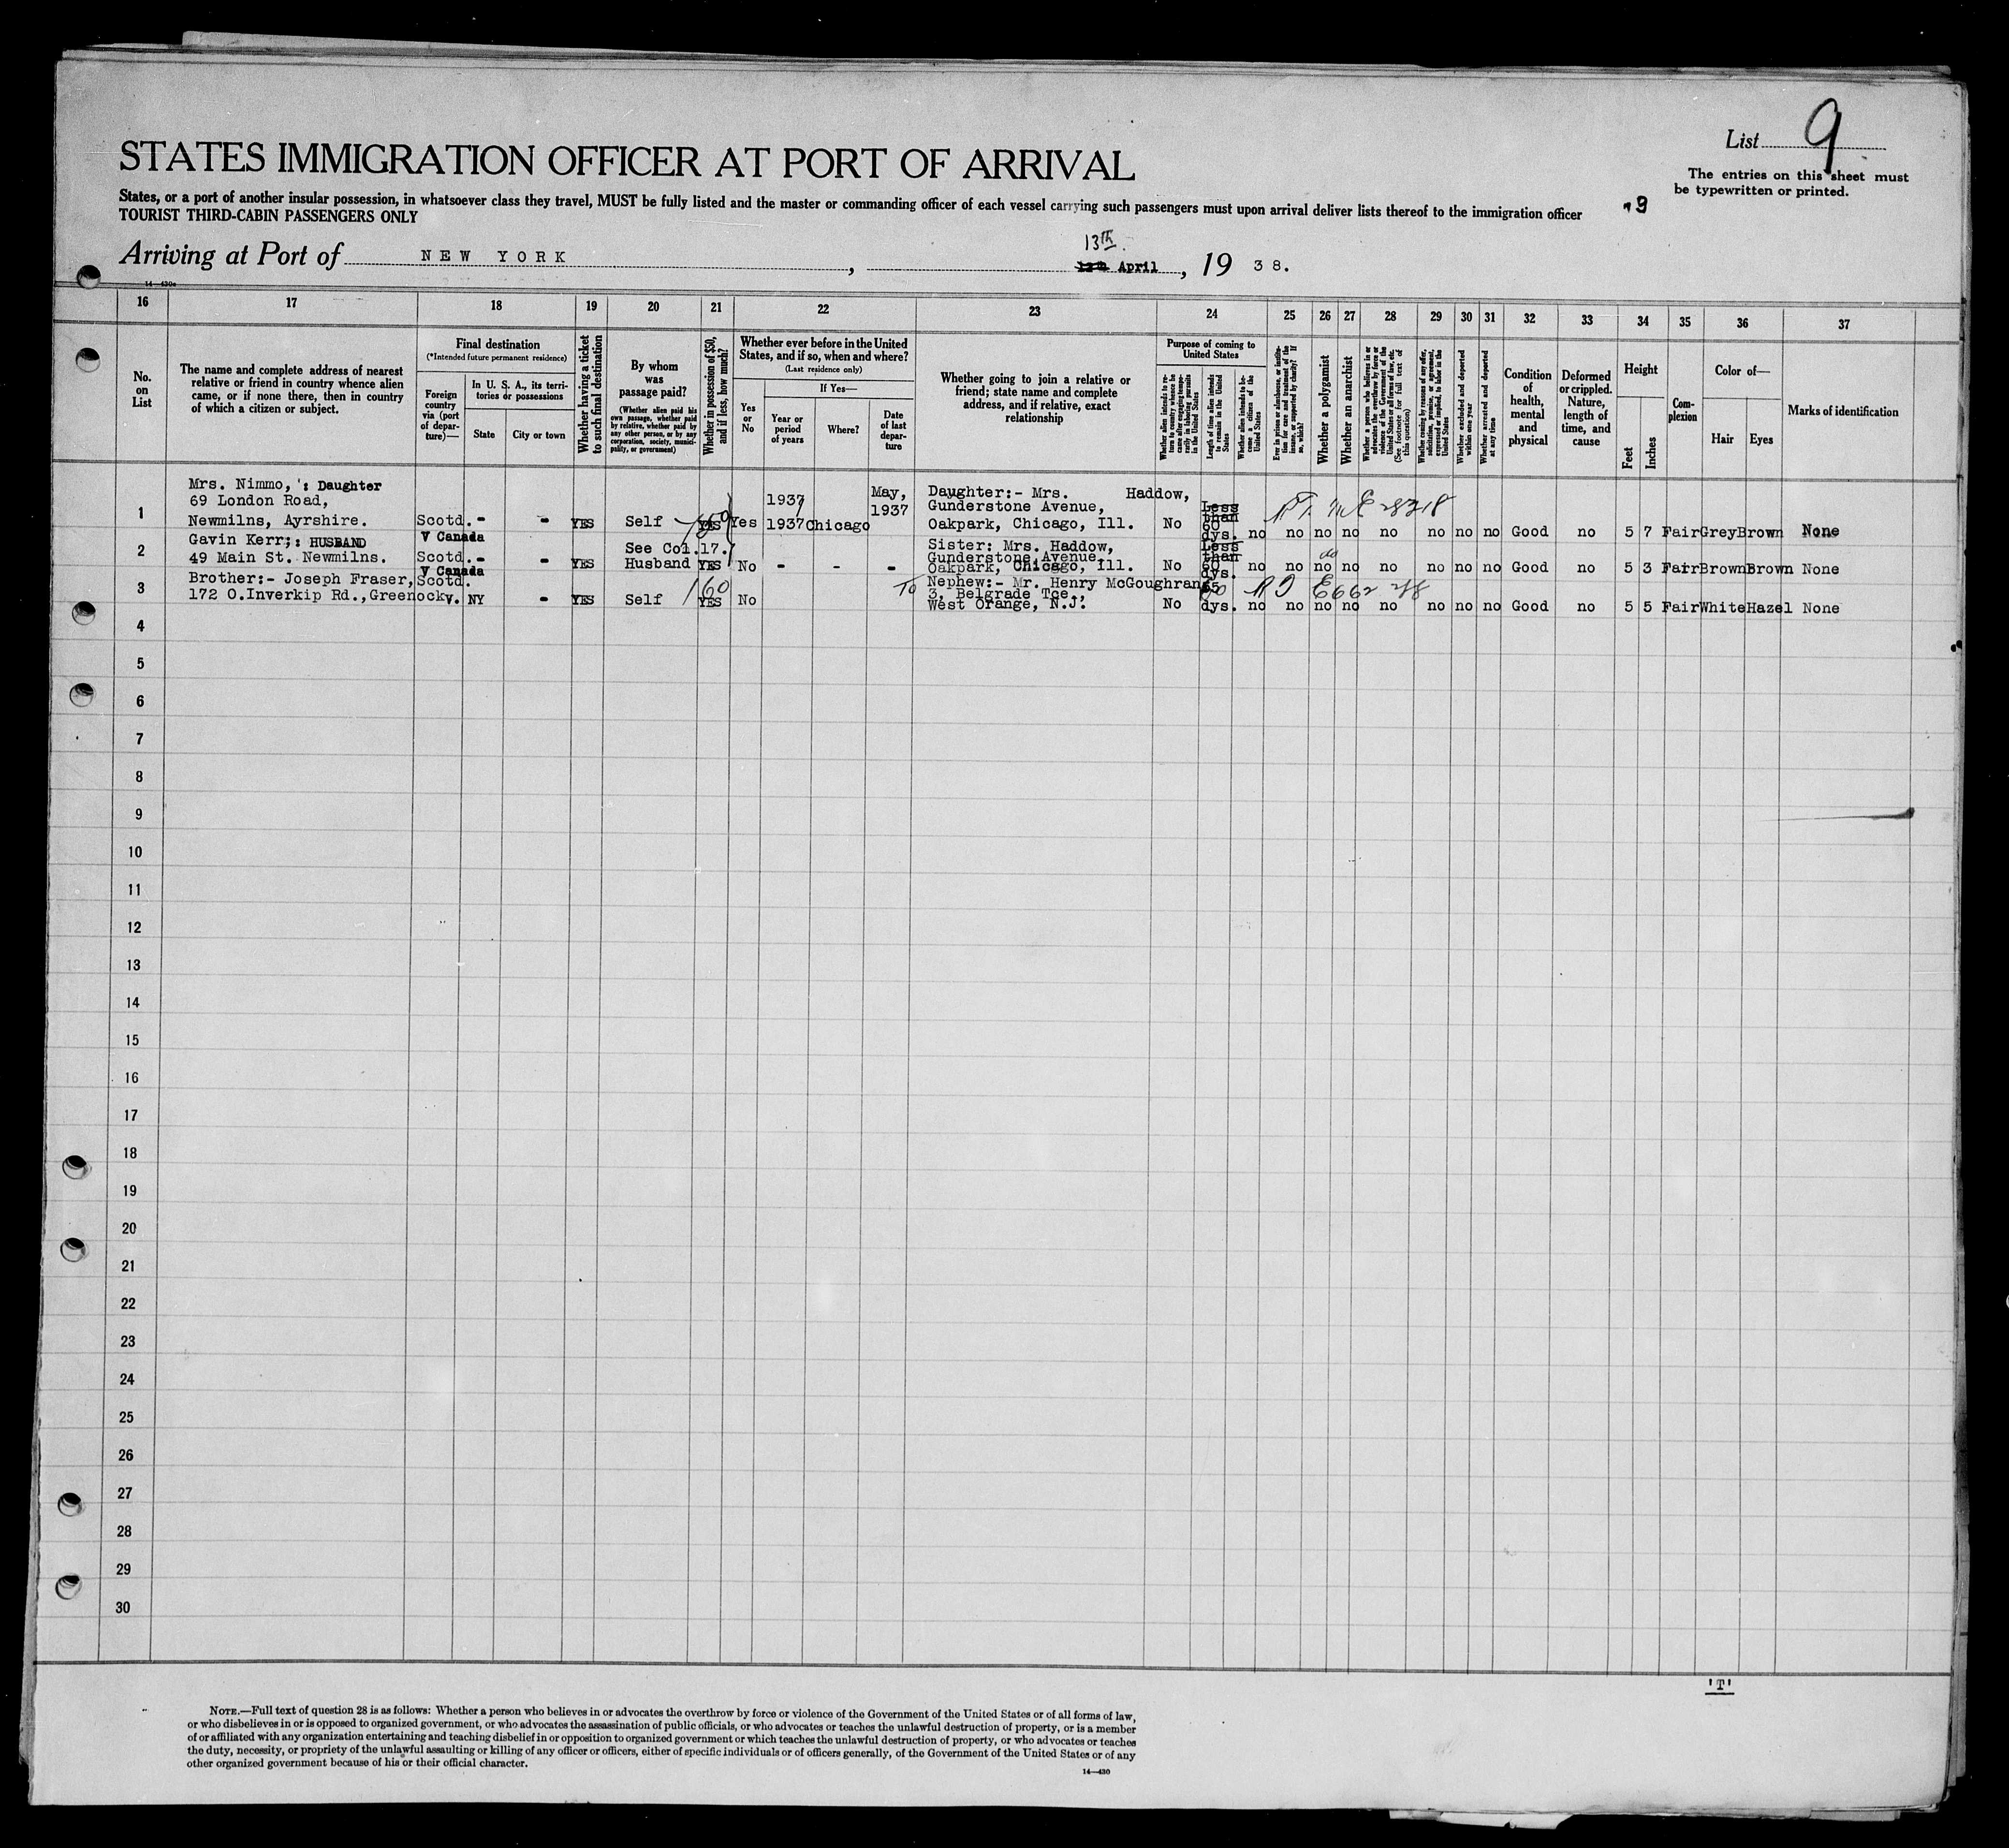 List 9
The entries on this sheet must
be typewritten or printed.
STATES IMMIGRATION OFFICER AT PORT OF ARRIVAL
States, or a port of another insular possession, in whatsoever class they travel, MUST be fully listed and the master or commanding officer of each vessel carrying such passengers must upon arrival deliver lists thereof to the immigration officer
TOURIST THIRD-CABIN PASSENGERS ONLY
13th
Arriving at Port of NEW YORK, 12th April, 19 38.
16 17 18 19 20 21 22 23 24 25 26 27 28 29 30 31 32 33 34 35 36 37
No.
on
List
The name and complete address of nearest
relative or friend in country whence alien
came, or if none there, then in country
of which a citizen or subject.
Final destination
(*Intended future permanent residence)
Foreign
country
via (port
of depar-
ture)—
In U. S. A., its terri-
tories or possessions
State
City or town
Whether having a ticket
to such final destination
By whom
was
passage paid?
(Whether alien paid his
own passage, whether paid
by relative, whether paid by
any other person, or by any
corporation, society, munici-
pality, or government)
Whether in possession of $50,
and if less, how much?
Whether ever before in the United
States, and if so, when and where?
(Last residence only)
Yes
or
No
If Yes—
Year or
period
of years
Where?
Date
of last
depar-
ture
Whether going to join a relative or
friend; state name and complete
address, and if relative, exact
relationship
Purpose of coming to
United States
Whether alien intends to re-
turn to country whence he
came after engaging tempo-
rarily in laboring pursuits
in the United States
Length of time alien intends
to remain in the United
States
Whether alien intends to be-
come a citizen of the
United States
Ever in prison or almshouse, or institu-
tion for care and treatment of the
insane, or supported by charity? If
so, which?
Whether a polygamist
Whether an anarchist
Whether a person who believes in or
advocates the overthrow by force or
violence of the Government of the
United States or all forms of law, etc.
(See footnote for full text of
this question)
Whether coming by reasons of any offer,
solicitation, promise, or agreement,
expressed or implied, to labor in the
United States
Whether excluded and deported
within one year
Whether arrested and deported
at any time
Condition
of
health,
mental
and
physical
Deformed
or crippled.
Nature,
length of
time, and
cause
Height
Feet
Inches
Com-
plexion
Color of—
Hair
Eyes
Marks of identification
Mrs. Nimmo, : Daughter
69 London Road,
1 Newmilns, Ayrshire. Scotd.- - YES Self YES Yes 1937 1937 Chicago May, 1937
V Canada
Daughter:- Mrs. Haddow,
Gunderstone Avenue,
Oakpark, Chicago, Ill. No Less than 60 dys. no no no no no no no no Good no 5 7 Fair Grey Brown None
Gavin Kerr;: HUSBAND
2 49 Main St. Newmilns. Scotd.- - YES See Col.17. Husband YES No - - -
V Canada
Sister: Mrs. Haddow,
Gunderstone Avenue,
Oakpark, Chicago, Ill. No Less than 60 dys. no no no no no no no no Good no 5 3 Fair Brown Brown None
3 Brother:- Joseph Fraser, Scotd.
172 O.Inverkip Rd., Greenock v. NY - YES Self 160 YES No
To Nephew:- Mr. Henry McGoughran,
3, Belgrade Tce.,
West Orange, N.J. No dys. no no no no no no no no Good no 5 5 Fair White Hazel None
4
5
6
7
8
9
10
11
12
13
14
15
16
17
18
19
20
21
22
23
24
25
26
27
28
29
30
'T'
NOTE.—Full text of question 28 is as follows: Whether a person who believes in or advocates the overthrow by force or violence of the Government of the United States or of all forms of law,
or who disbelieves in or is opposed to organized government, or who advocates the assassination of public officials, or who advocates or teaches the unlawful destruction of property, or is a member
of or affiliated with any organization entertaining and teaching disbelief in or opposition to organized government or which teaches the unlawful destruction of property, or who advocates or teaches
the duty, necessity, or propriety of the unlawful assaulting or killing of any officer or officers, either of specific individuals or of officers generally, of the Government of the United States or of any
other organized government because of his or their official character.
14—430